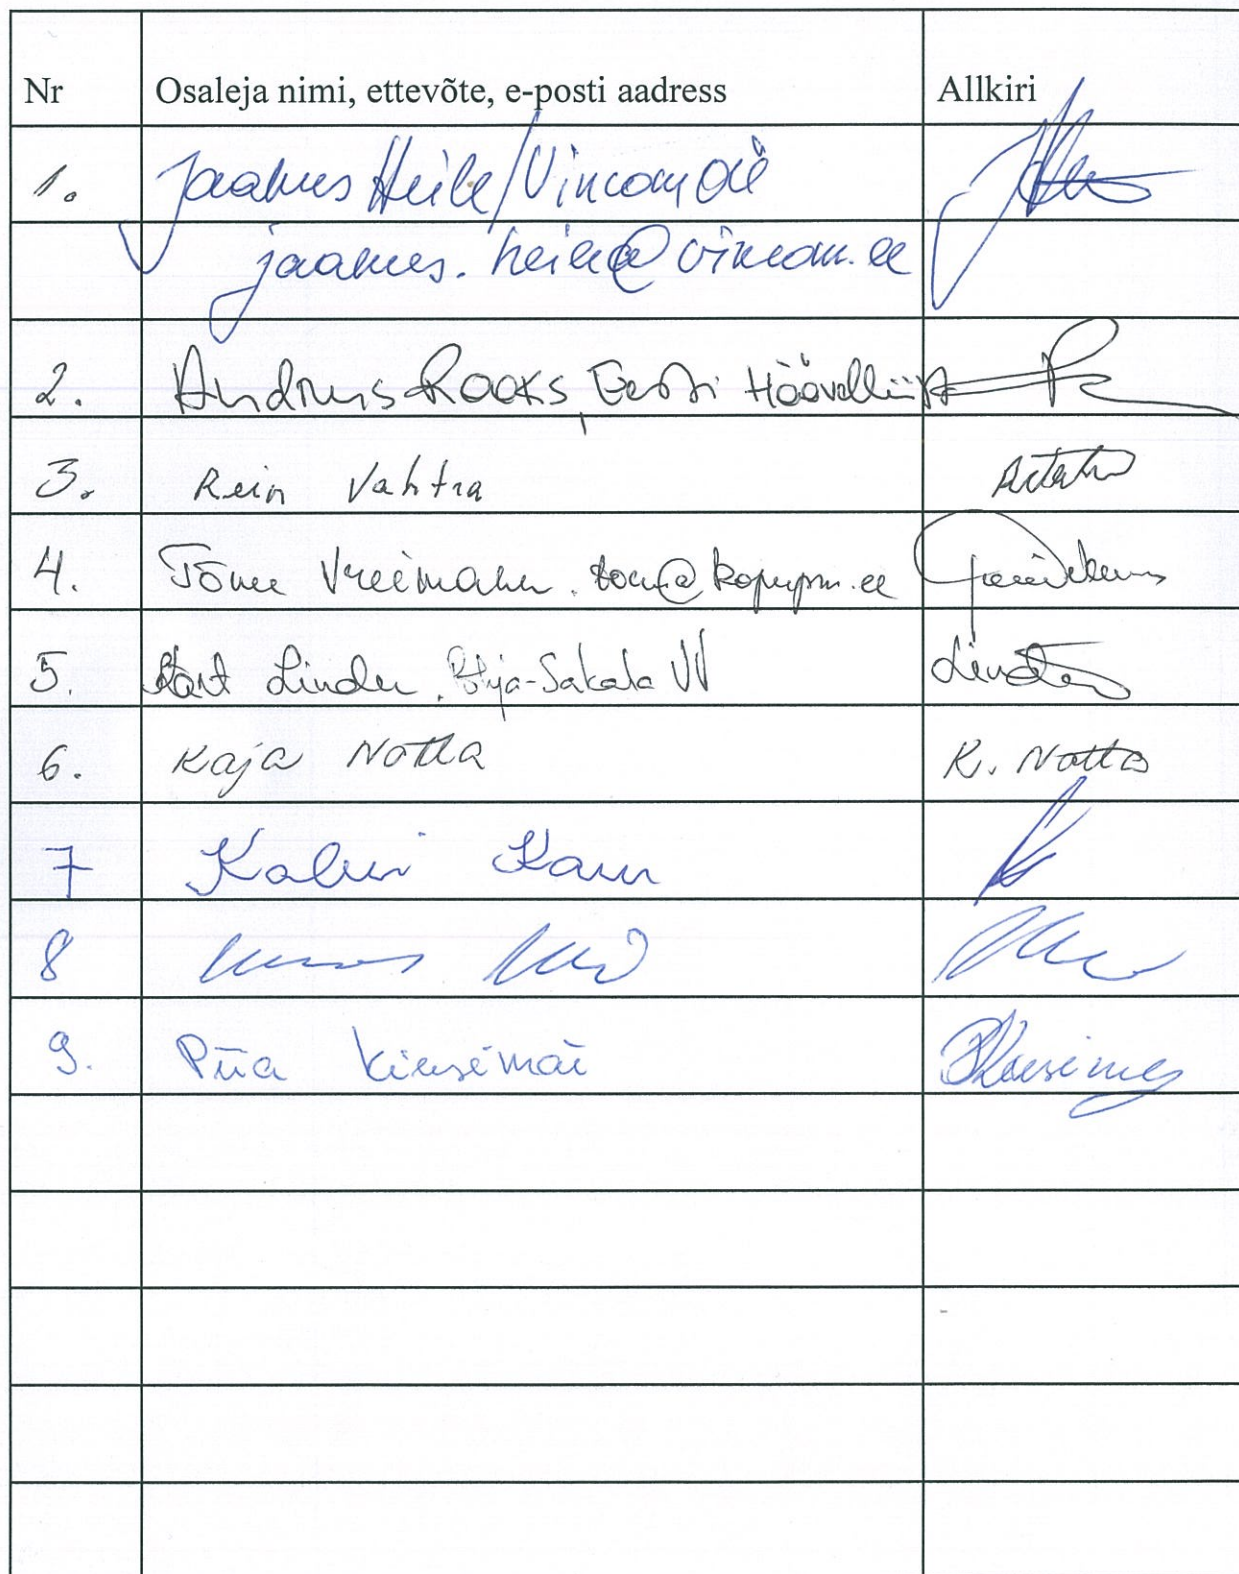 Nr Osaleja nimi, ettevõte, e-posti aadress Allkiri
1. Jaakus Heile/Vincom OÜ
jaakus.heile@vincom.ee
2. Andrus Rooks, Eesti Höövelliist
3. Rein Vahtra
4. Tõnu Vreimann
5. Kart Linder, Põhja-Sakala VV Linder
6. Kaja Notta K. Notta
7 Kalmi Kann
8
9. Piia Kiensimäe